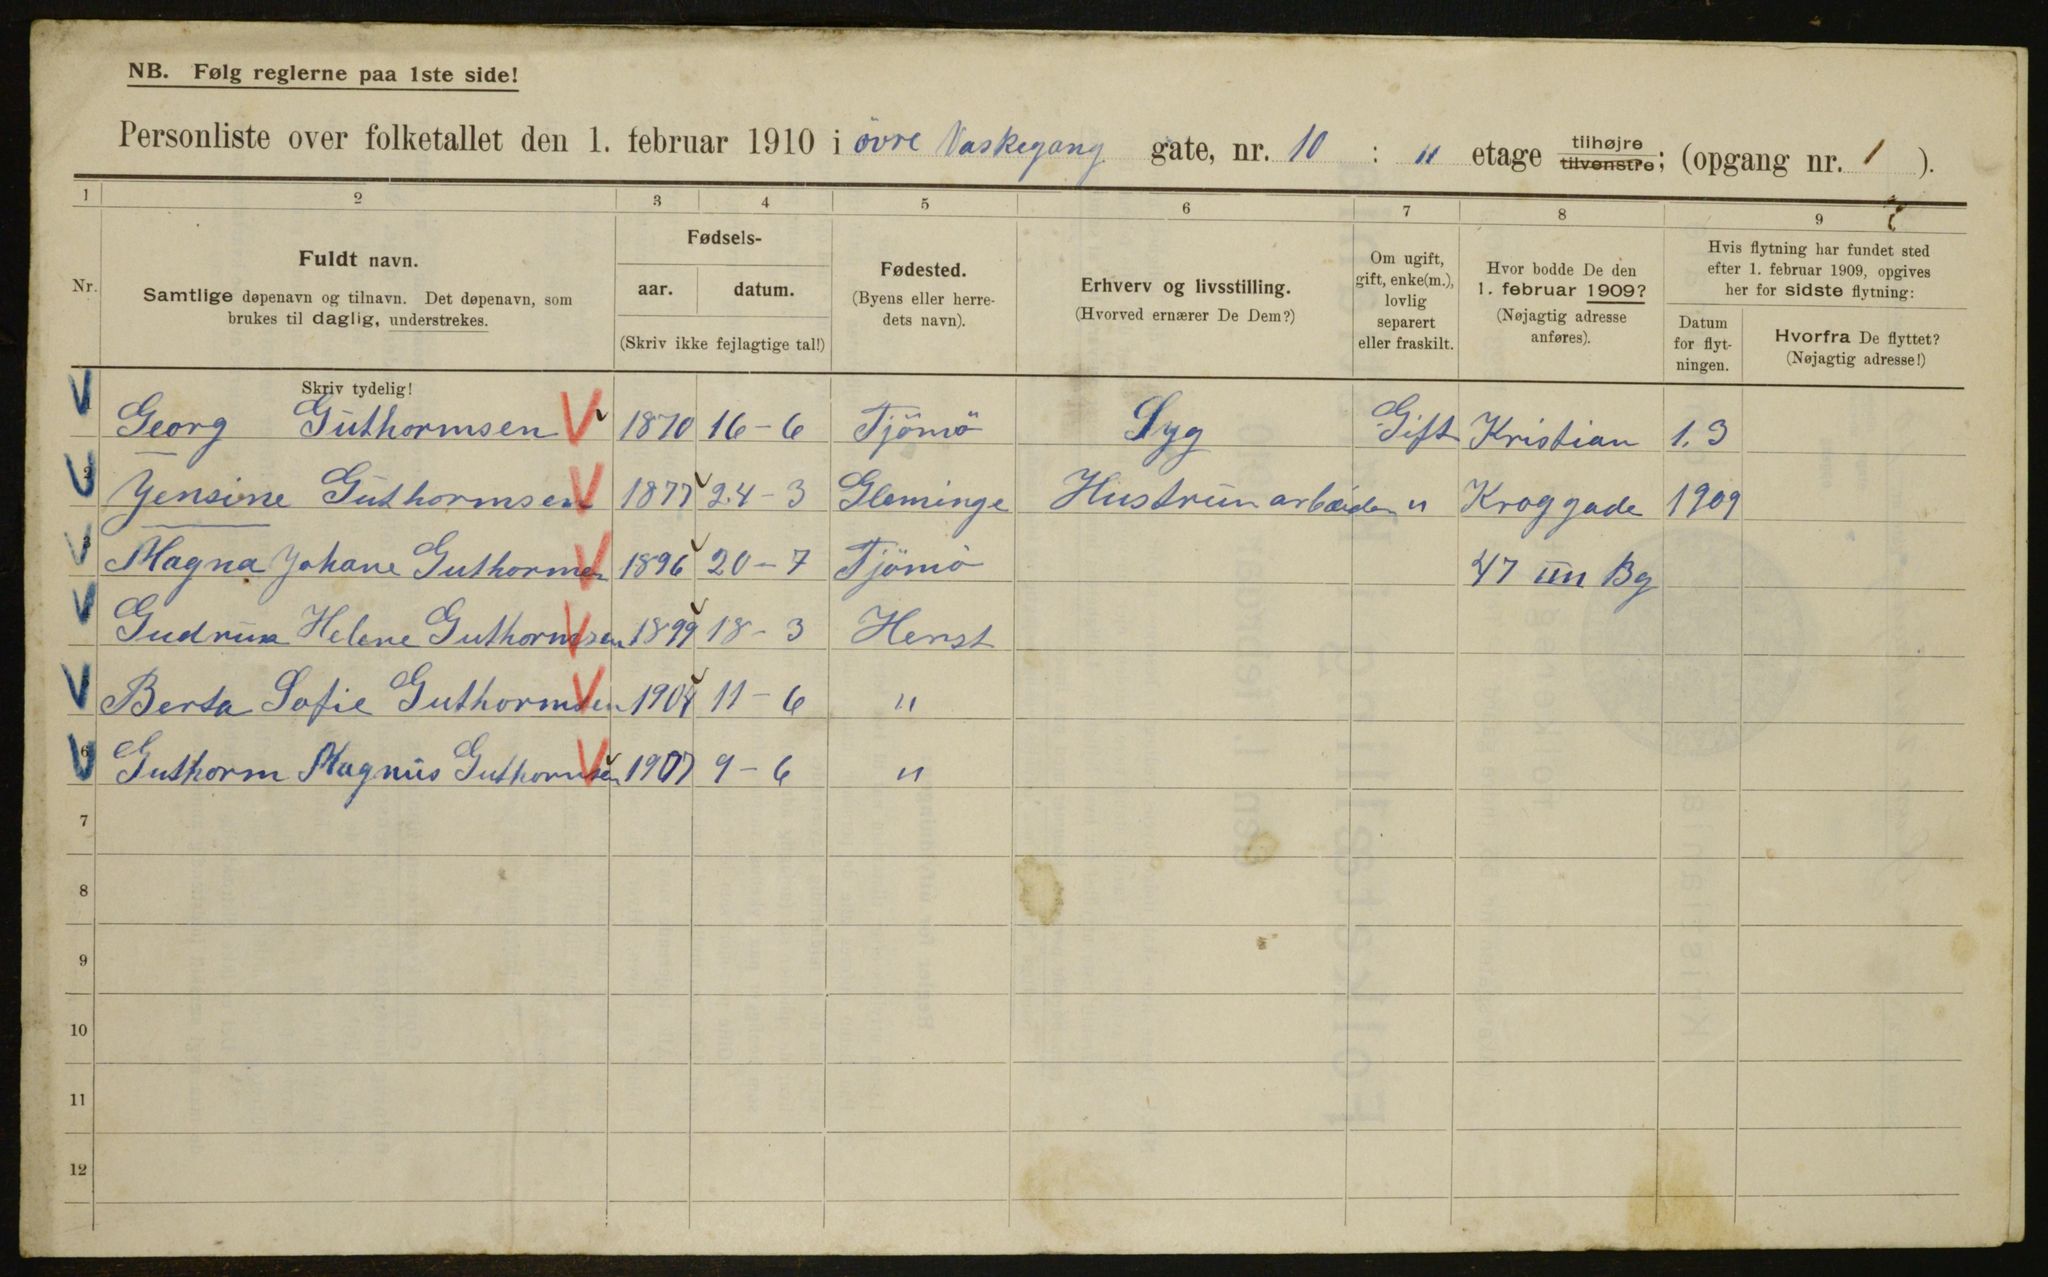 NB. Følg reglerne paa 1ste side!
Personliste over folketallet den 1. februar 1910 i övre Vaskegang gate, nr. 10 : 11 etage tilhøjre tilvenstre; (opgang nr. 1 ).
1 2 3 4 5 6 7 8 9
Nr.
Fuldt navn.
Samtlige døpenavn og tilnavn. Det døpenavn, som
brukes til daglig, understrekes.
Fødsels-
aar. datum.
(Skriv ikke fejlagtige tal!)
Fødested.
(Byens eller herre-
dets navn).
Erhverv og livsstilling.
(Hvorved ernærer De Dem?)
Om ugift,
gift, enke(m.),
lovlig
separert
eller fraskilt.
Hvor bodde De den
1. februar 1909?
(Nøjagtig adresse
anføres).
Hvis flytning har fundet sted
efter 1. februar 1909, opgives
her for sidste flytning:
Datum
for flyt-
ningen.
Hvorfra De flyttet?
(Nøjagtig adresse!)
Skriv tydelig!
Georg Guthormsen 1870 16-6 Tjömö Syg Gift Kristian 1.3
2 Yensine Guthormsen 1877 24-3 Gleminge Hustrun arbeider " Kroggade 1909
3 Magna Johane Guthormsen 1896 20-7 Tjömö 47 IIII Bg
Gudrun Helene Guthormsen 1899 18-3 Herst
5 Berta Sofie Guthormsen 1904 11-6 "
6 Guthorm Magnus Guthormsen 1907 9-6 "
7
8
9
10
11
12